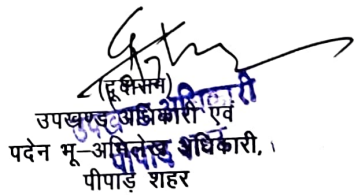 उपखण्ड अधिकारी एवं
पदेन भू–अभिलेख अधिकारी,
पीपाड़ शहर
उपखण्ड अधिकारी
पीपाड़